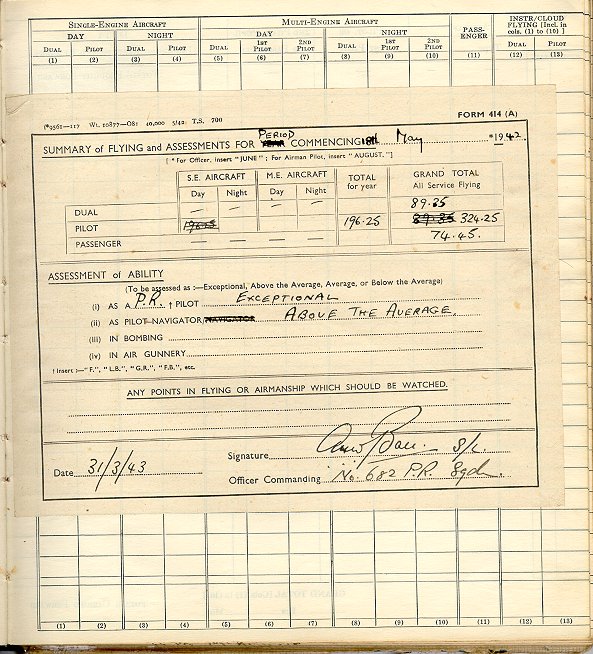 SINGLE-ENGINE AIRCRAFT MULTI-ENGINE AIRCRAFT PASS-ENGER INSTR/CLOUD FLYING [Incl. in cols. (1) to (10) ]
DAY NIGHT DAY NIGHT
DUAL PILOT DUAL PILOT DUAL 1ST PILOT 2ND PILOT DUAL 1ST PILOT 2ND PILOT DUAL PILOT
(1) (2) (3) (4) (5) (6) (7) (8) (9) (10) (11) (12) (13)
(*9561—117 Wt. 20877—O81 40,000 5/42 T.S. 700 FORM 414 (A)
SUMMARY of FLYING and ASSESSMENTS FOR YEAR PERIOD COMMENCING 18th May *1942.
[ * For Officer, insert "JUNE" ; For Airman Pilot, insert "AUGUST."]
S.E. AIRCRAFT M.E. AIRCRAFT TOTAL for year GRAND TOTAL All Service Flying
Day Night Day Night
DUAL — — — — 89.35
PILOT 196.25 196.25 89.35 324.25
PASSENGER — — — — 74.45.
ASSESSMENT of ABILITY
(To be assessed as :—Exceptional, Above the Average, Average, or Below the Average)
(i) AS A P.R. † PILOT EXCEPTIONAL
(ii) AS PILOT-NAVIGATOR/NAVIGATOR ABOVE THE AVERAGE.
(iii) IN BOMBING
(iv) IN AIR GUNNERY
† Insert :—"F.", "L.B.", "G.R.", "F.B.", etc.
ANY POINTS IN FLYING OR AIRMANSHIP WHICH SHOULD BE WATCHED.
Signature S/L.
Date 31/3/43
Officer Commanding No. 682 P.R. Sqdn.
(1) (2) (3) (4) (5) (6) (7) (8) (9) (10) (11) (12) (13)